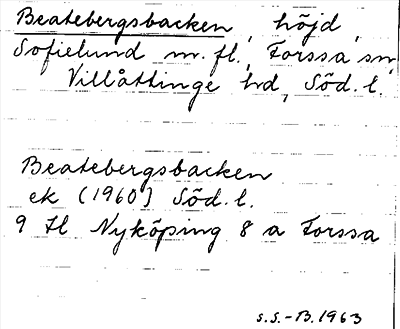 Beatebergsbacken, höjd,
Sofielund m.fl., Forssa sn,
Villåttinge hd, Söd.l.
Beatebergsbacken
ek (1960) Söd.l.
9 H Nyköping 8 a Forssa
S.S.-B. 1963